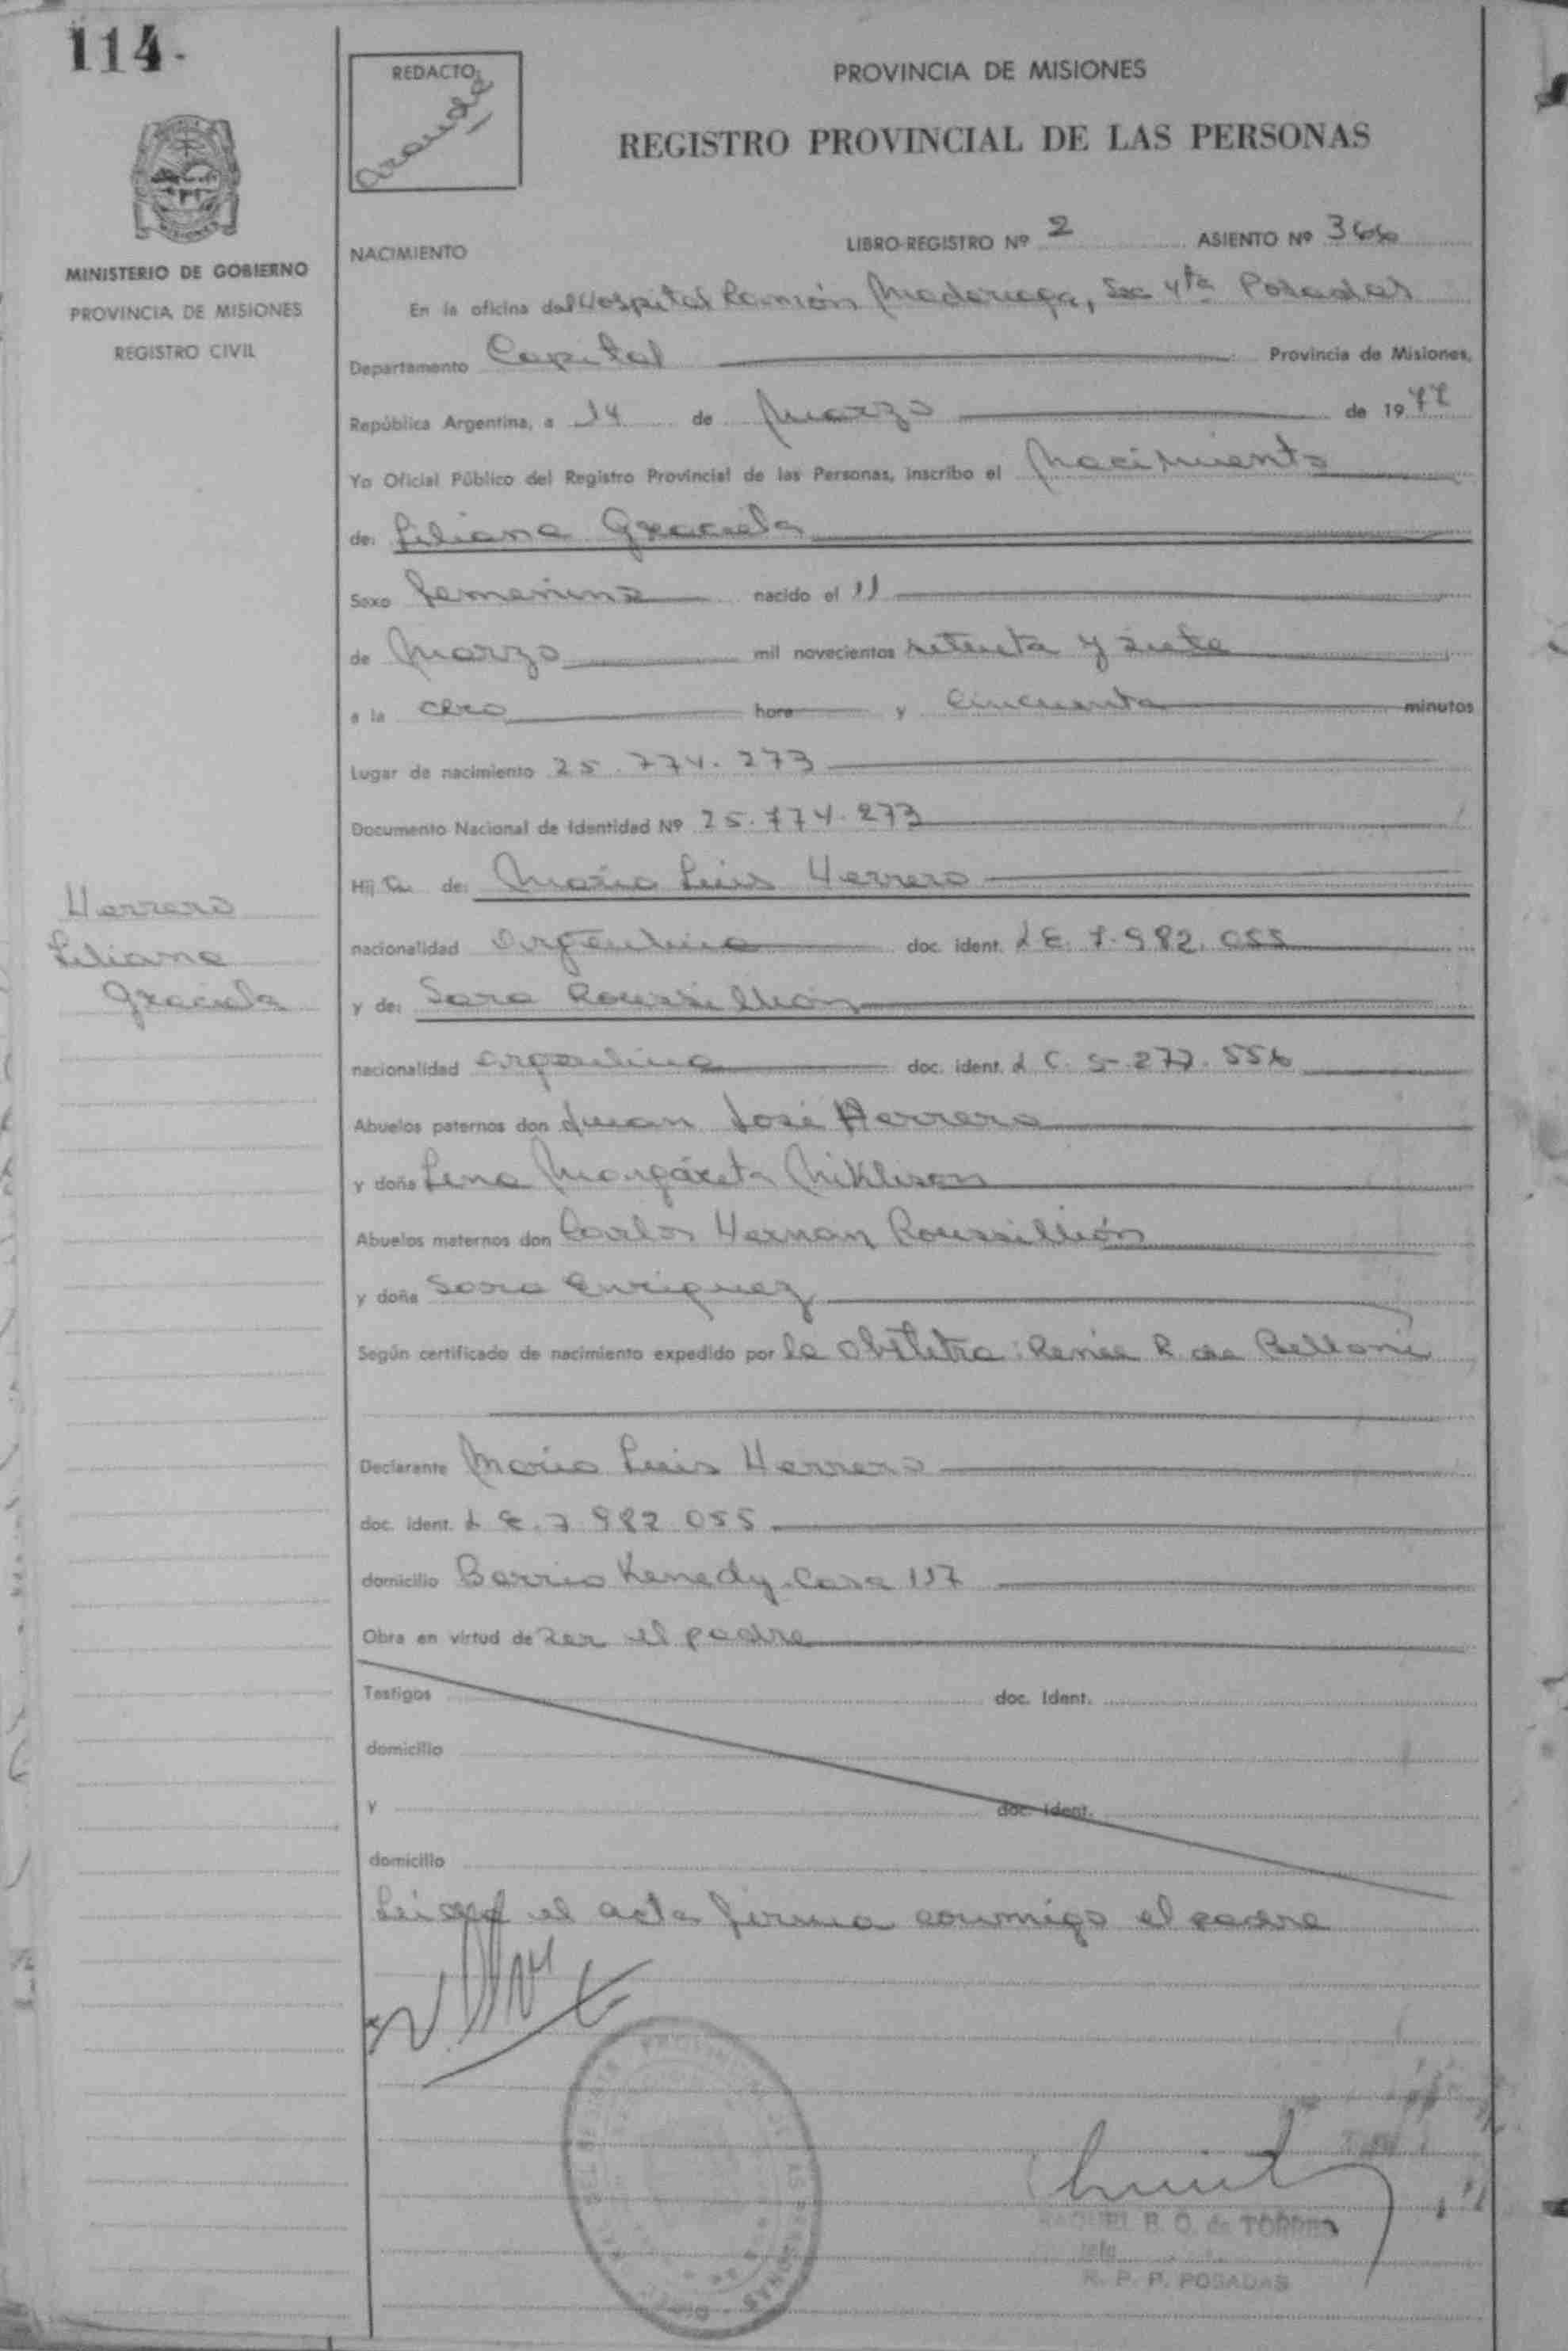 114.
REDACTO:
PROVINCIA DE MISIONES
REGISTRO PROVINCIAL DE LAS PERSONAS
MINISTERIO DE GOBIERNO
PROVINCIA DE MISIONES
REGISTRO CIVIL
NACIMIENTO
LIBRO-REGISTRO Nº 2 ASIENTO Nº 366
En la oficina del Hospital Ramón Madariaga, Sec 4ta Posadas
Departamento Capital Provincia de Misiones,
República Argentina, a 14 de Marzo de 1977
Yo Oficial Público del Registro Provincial de las Personas, inscribo el Nacimiento
de: Liliana Graciela
Sexo femenino nacido el 11
de Marzo mil novecientos setenta y siete
a la cero hora y cincuenta minutos
Lugar de nacimiento 25.774.273
Documento Nacional de Identidad Nº 25.774.273
Hija de: Mario Luis Herrero
nacionalidad argentina doc. ident. L E. 7.982.055
y de: Sara Roussillión
nacionalidad argentina doc. ident. L C. 5-277.556
Abuelos paternos don Juan José Herrero
y doña Lena Margareta Mikhlson
Abuelos maternos don Carlos Hernan Roussillión
y doña Sara Enriquez
Según certificado de nacimiento expedido por la obstetra: Renée R. de Belloni
Declarante Mario Luis Herrero
doc. ident. L E. 7 982 055
domicilio Barrio Kenedy-Casa 117
Obra en virtud de ser el padre
Testigos doc. Ident.
domicilio
y doc. Ident.
domicilio
Leida el acta firma conmigo el padre
Herrero
Liliana
Graciela
RAQUEL E. O. de TORRES
R. P. P. POSADAS